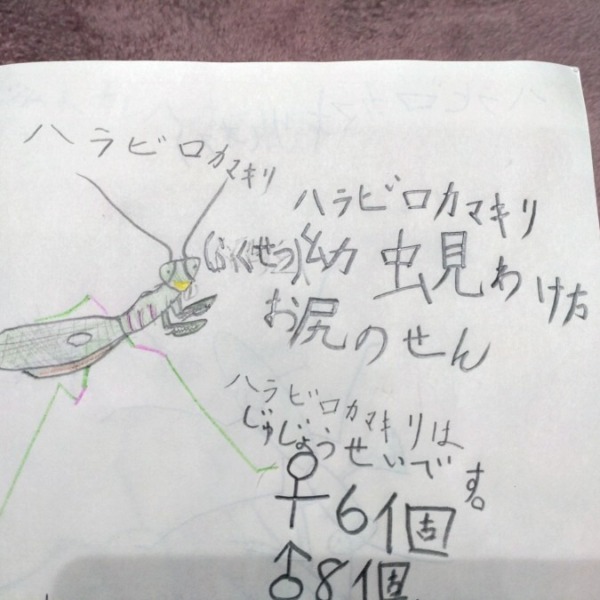 ハラビロカマキリ
ハラビロカマキリ
(ふくせつ)幼虫見わけ方
お尻のせん
ハラビロカマキリは
じゅじょうせいです。
♀6個
♂8個